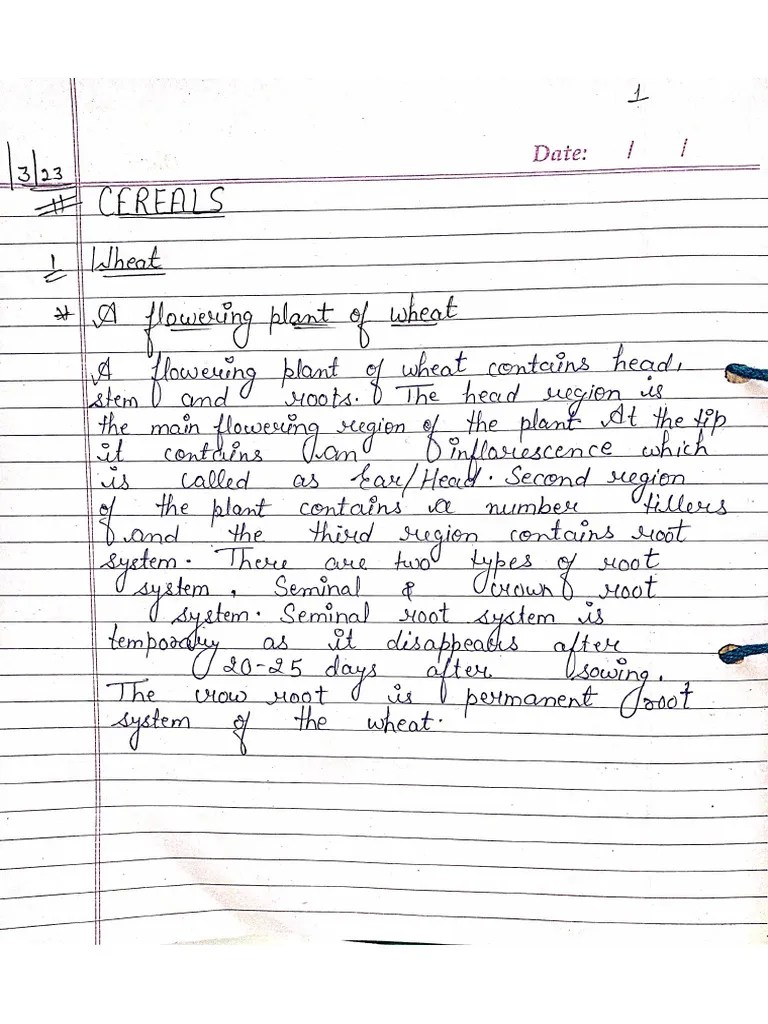 1
Date: / /
/3/23
# CEREALS
1 Wheat
* A flowering plant of wheat
A flowering plant of wheat contains head,
stem and roots. The head region is
the main flowering region of the plant At the tip
it contains an inflorescence which
is called as Ear/Head. Second region
of the plant contains a number tillers
and the third region contains root
system. There are two types of root
system, Seminal & crown root
system. Seminal root system is
temporary as it disappears after
20-25 days after sowing.
The crow root is permanent root
system of the wheat.